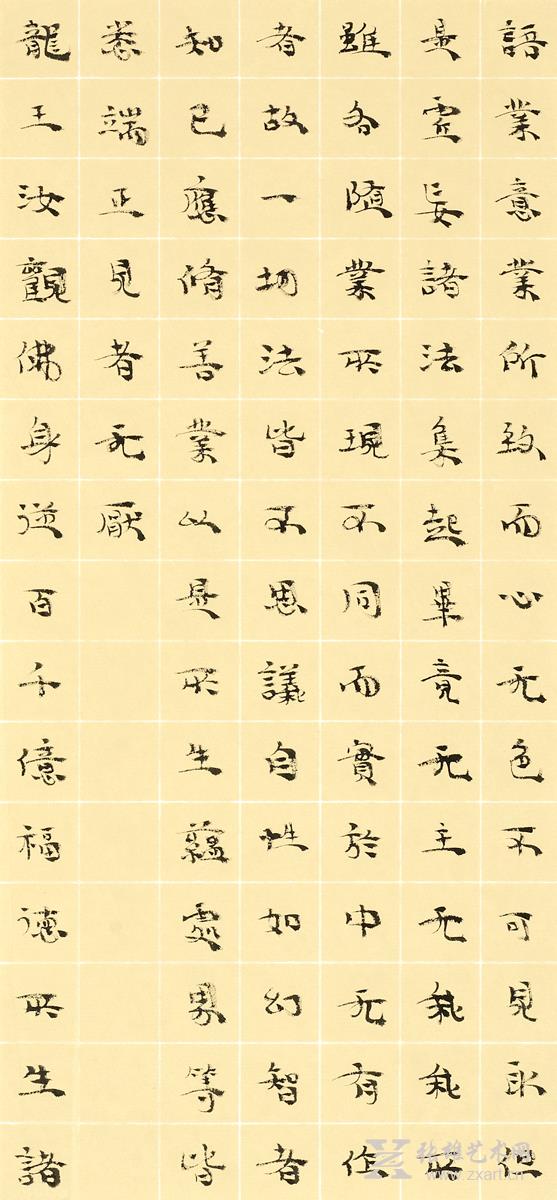 語業意業所致而心无色不可見取但
是虛妄諸法集起畢竟无主无我我所
雖各隨業所現不同而實於中无有作
者故一切法皆不思議自性如幻智者
知已應脩善業以是所生蘊處界等皆
悉端正見者无厭
龍王汝觀佛身從百千億福德所生諸
张雄艺术网
www.zxart.cn